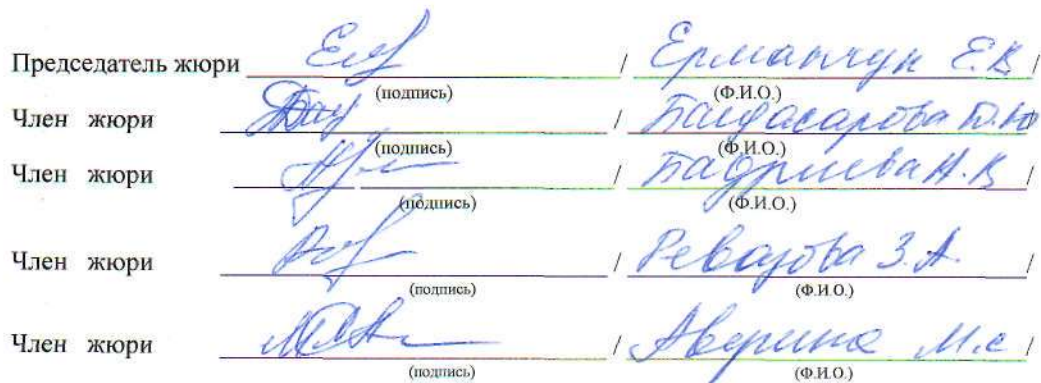 Председатель жюри / Ерманчук Е.В /
(подпись) (Ф.И.О.)
Член жюри / Багдасарова Д.Ю
(подпись) (Ф.И.О.)
Член жюри / Бадриева Н.В /
(подпись) (Ф.И.О.)
Член жюри / Ревазова З.А. /
(подпись) (Ф.И.О.)
Член жюри / Аверина М.С /
(подпись) (Ф.И.О.)